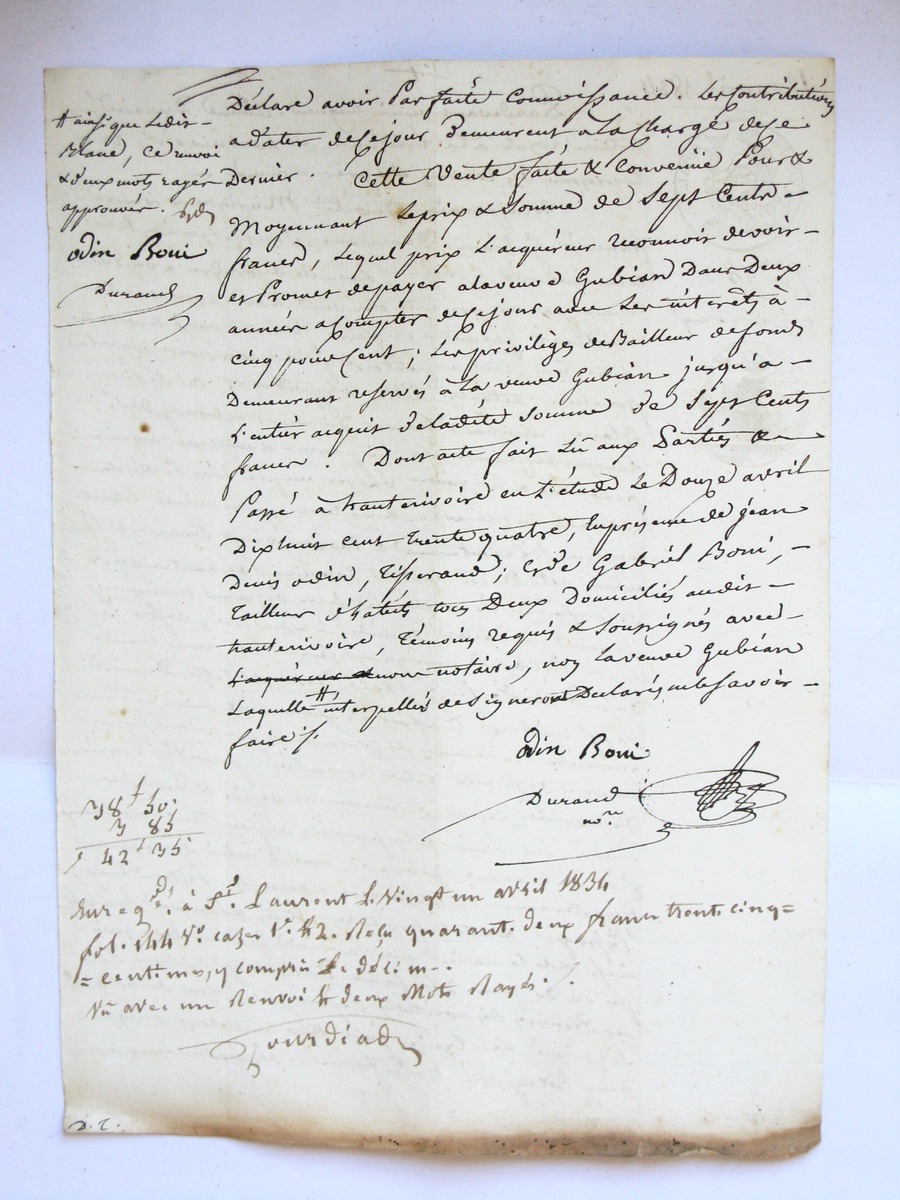 Déclare avoir Parfaite Connoissance. Les Contributions
a dater de ce jour Demeurent à La Charge de ce
Dernier. Cette Vente faite & Convenüe Pour &
Moyennant Le prix & Somme de Sept Cents
francs, Lequel prix L'acquéreur reconnoir devoir
et Promet de payer a la veuve Gubian Dans Deux
années a Compter de ce jour avec Les intérêts à
Cinq pour Cent; Les privilèges de Bailleur de fonds
Demeurant réservés à La veuve Gubian jusqu'a
L'entier acquit de Ladite Somme de Sept Cents
francs. Dont acte fait Lû aux Parties &
Passé à hauterivoire en L'étude Le Douze avril
Dix huit cent trente quatre, En présence de jean
Denis odin, Tisserand; & de Gabriel Boni,
Tailleur d'habits tous Deux Domiciliés audit
hauterivoire, Témoins requis & Soussignés avec
L'acquéreur & nous notaire, non La veuve Gubian
Laquelle # interpellés de Signer ont Declarés ne le Savoir
faire ./.
# ainsi que Ledit
Blanc, Ce renvoi
& deux mots rayés
approuvés.
odin Boni
Durand
odin Boni
Durand
nore
38 f 50
3 85
42 f 35
Enregé. à St. Laurent le Vingt un avril 1834
fol. 144 Vo. cases 1re. & 2. Reçu quarante deux francs trente cinq
centimes, y compris le décime.
Vû avec un Renvoi & deux Mots Rayés ./.
D. C.